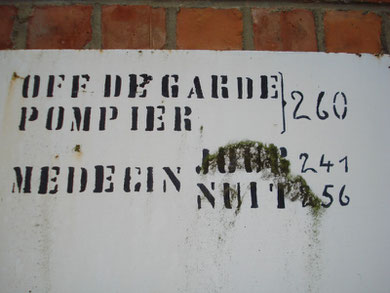 OFF DE GARDE 260
POMPIER
MEDECIN JOUR 241
NUIT 256